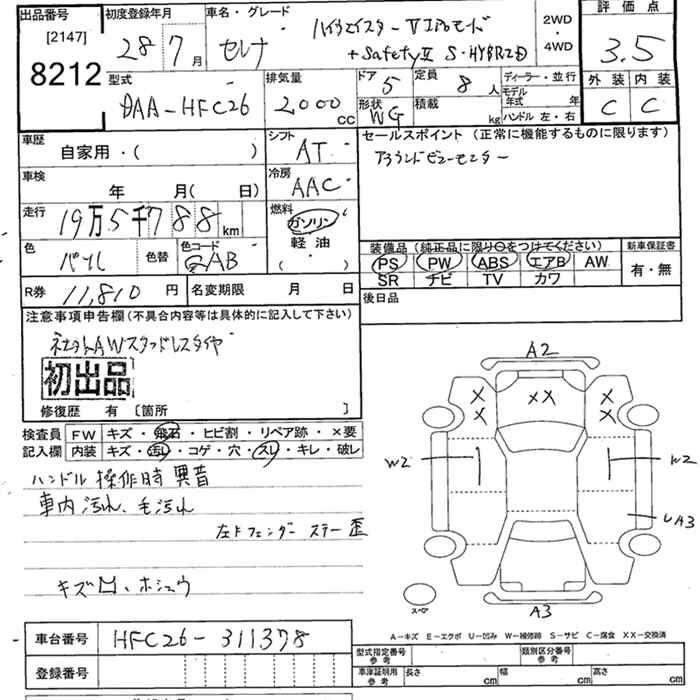 出品番号
[2147]
8212
初度登録年月
28 7 月
車名・グレード
セレナ
ハイウェイスター Vエアロモード
+SafetyII S-HYBRID
2WD
・
4WD
評価点
3.5
外装 内装
C C
型式
DAA-HFC26
排気量
2000 CC
ドア 5
定員 8 人
形状 WG
積載 kg
ディーラー・並行
モデル年式 年
ハンドル 左・右
車歴
自家用・( )
シフト
AT
車検
年 月( 日)
冷房
AAC
走行
19万5千788 km
燃料
ガソリン
軽油
・( )
色
パール
色替
色コード
QAB
R券 11,810 円
名変期限 月 日
セールスポイント (正常に機能するものに限ります)
アラウンドビューモニター
装備品 (純正品に限り○をつけてください)
新車保証書
PS PW ABS エアB AW
SR ナビ TV カワ
有・無
後日品
注意事項申告欄(不具合内容等は具体的に記入して下さい)
社外AWスタッドレスタイヤ
初出品
修復歴 有 [箇所 ]
検査員
記入欄
FW キズ・飛石・ヒビ割・リペア跡・×要
内装 キズ・汚れ・コゲ・穴・スレ・キレ・破レ
ハンドル操作時異音
車内汚れ、毛汚れ
左Fフェンダーステー歪
キズ凹、ホシュウ
A2
XX
X
X
X
X
W2
W2
UA3
A3
スペア
A-キズ E-エクボ U-凹み W-補修跡 S-サビ C-腐食 XX-交換済
車台番号
HFC26-311378
登録番号
型式指定番号
参考
類別区分番号
参考
車庫証明用
参考
長さ cm 幅 cm 高さ cm